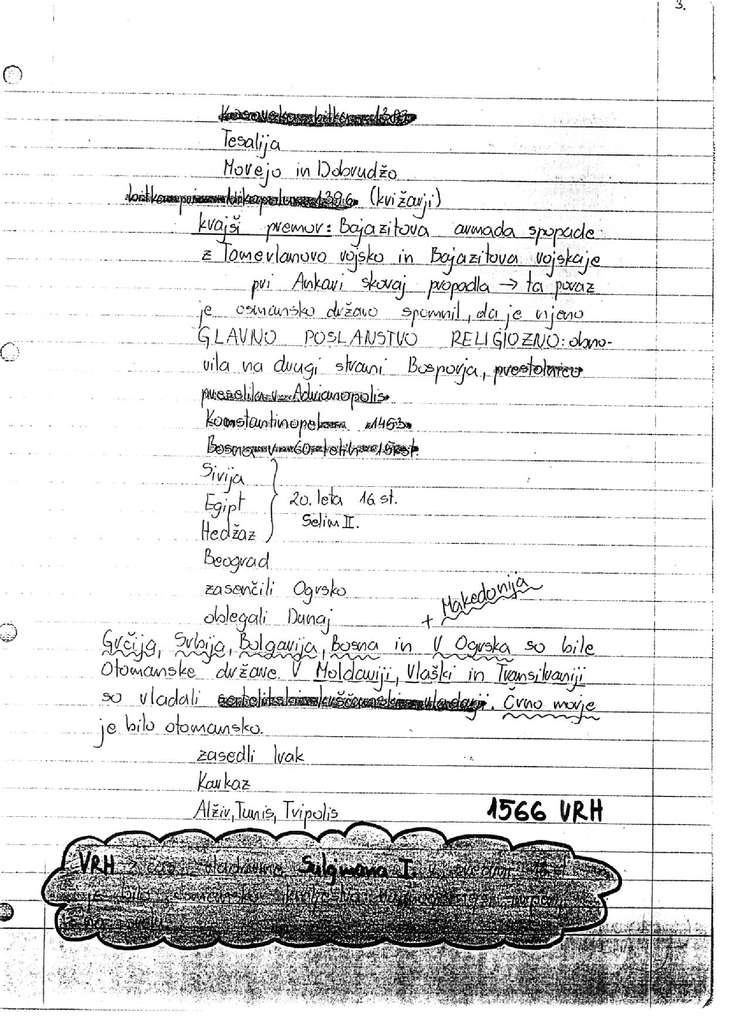 3.
Kosovska bitka 1389
Tesalija
Morejo in Dobrudžo
bitka pri Nikopolu 1396 (križarji)
krajši premor: Bajazitova armada spopade
z Tamerlanovo vojsko in Bajazitova vojska je
pri Ankari skoraj propadla → ta poraz
je osmansko državo spomnil, da je njeno
GLAVNO POSLANSTVO RELIGIOZNO: obno-
vila na drugi strani Bosporja, prestolnico
preselila v Adrianopolis
Konstantinopel 1453
Bosna v 60-tih 15. st
Sirija
Egipt 20. leta 16 st.
Selim II.
Hedžaz
Beograd
zasenčili Ogrsko
oblegali Dunaj
+ Makedonija
Grčija, Srbija, Bolgarija, Bosna in V Ogrska so bile
Otomanske države. V Moldaviji, Vlaški in Transilvaniji
so vladali krščanski vladarji. Črno morje
je bilo otomansko.
zasedli Irak
Kavkaz
Alžir, Tunis, Tripolis
1566 VRH
VRH vladavine Sulejmana I.
je bilo osmansko